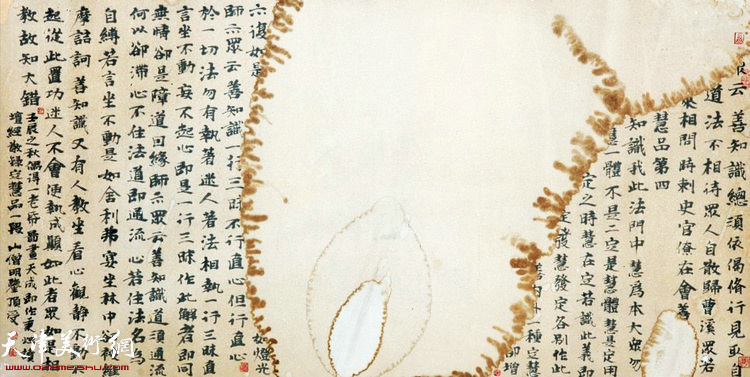 云善知識總須依偈修行見取自
道法不相待眾人自散歸曹溪眾若
來相問時刺史官僚在會善
慧品第四
知識我此法門中慧為本大眾勿
慧一體不是二定是慧體慧是定用
定之時慧在定若識此義即
定發慧發定各別作此
善內外一種定慧
即增
如燈光
六復如是
師示眾云善知識一行三昧不行直心但行直心
於一切法勿有執著迷人著法相執一行三昧直
言坐不動妄不起心即是一行三昧作此解者即同
無情卻是障道因緣師示眾云善知識道須通流
何以卻滯心不住法道即通流心若住法名為
自縛若言坐不動是如舍利弗宴坐林中卻被維
摩詰訶善知識又有人教坐看心觀靜不
起從此置功迷人不會便執成顛如此者眾如是
教故知大錯
壬辰之秋偶得一老紙畫天成即作
壇經敬錄定慧品一段 山僧明鑒頂受
天津美術網
www.022meishu.com